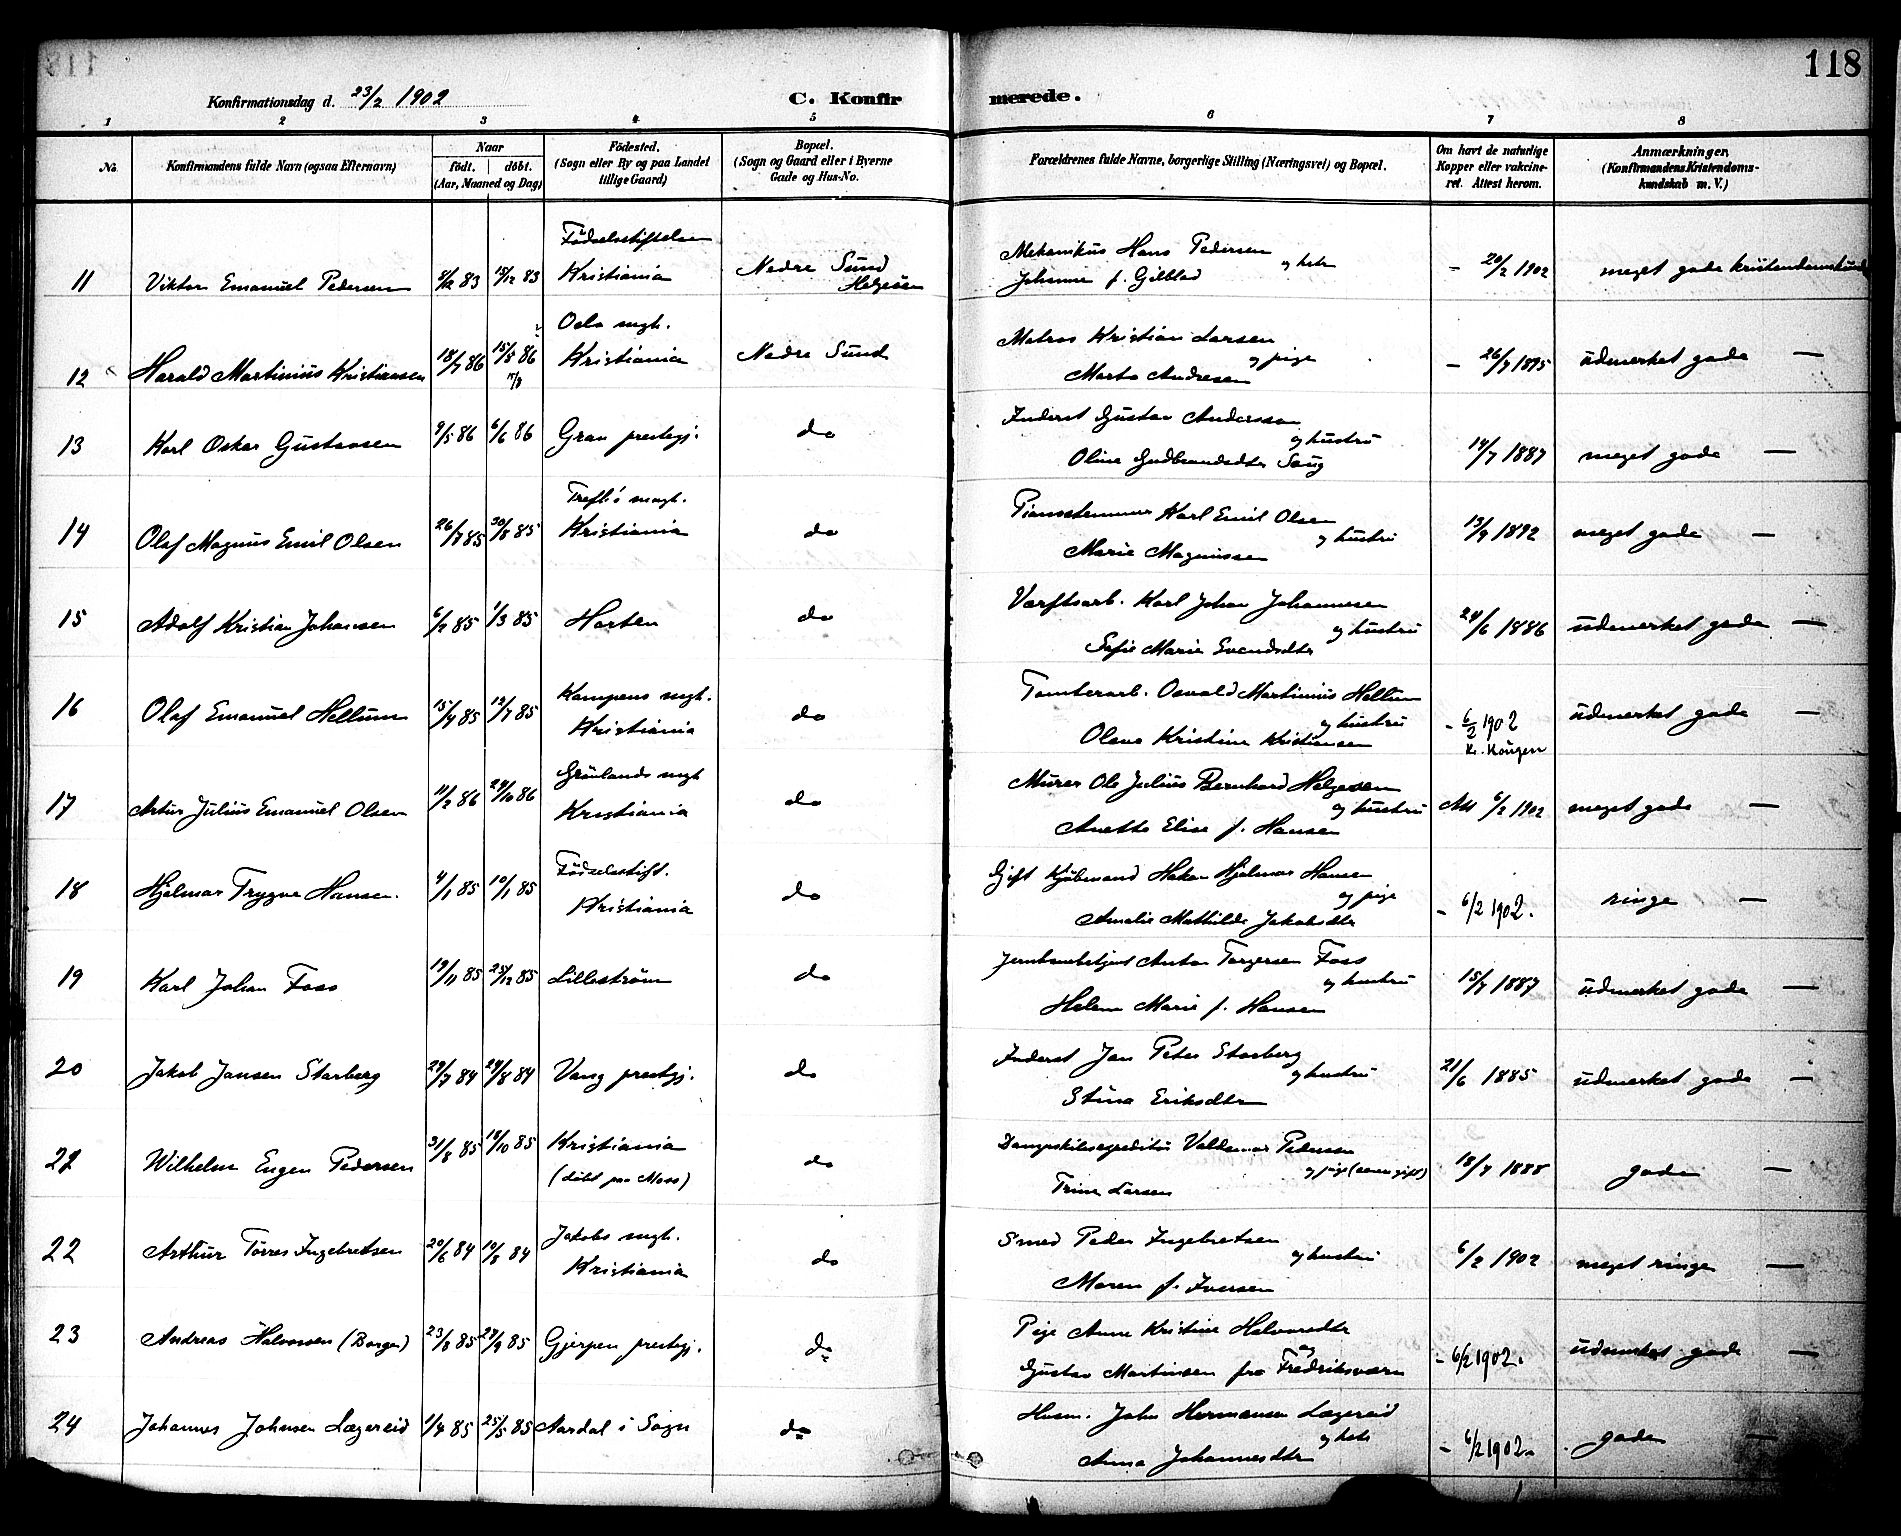 118
Konfirmationsdag d. 23/2 1902
C. Konfirmerede.
1 2 3 4 5 6 7 8
No. | Konfirmandens fulde Navn (ogsaa Efternavn) | Naar født. døbt. (Aar, Maaned og Dag) | Fødested. (Sogn eller By og paa Landet tillige Gaard) | Bopæl. (Sogn og Gaard eller i Byerne Gade og Hus-No. | Forældrenes fulde Navne, borgerlige Stilling (Næringsvei) og Bopæl. | Om havt de naturlige Kopper eller vakcineret. Attest herom. | Anmærkninger, (Konfirmandens Kristendomskundskab m. V.)
11 | Viktor Emanuel Pedersen | 8/12 83 | 15/12 83 | Fødselsstiftelsen Kristiania | Nedre Sund Helgesen | Mekanikus Hans Pedersen og hstr Johanne f. Gilblad | - 20/2 1902 | meget gode kristendomskund
12 | Harald Martinius Kristiansen | 18/7 86 | 15/8 86 | Oslo mgh. Kristiania | Nedre Sund | Matros Kristian Larsen og pige Marta Andresen | - 26/7 1895 | udmerket gode —
13 | Karl Oskar Gustavsen | 9/5 86 | 6/6 86 | Gran prestegj. | do | Inderst Gustav Anderssen og hustru Oline Gudbrandsdtr Saug | 14/7 1887 | meget gode —
14 | Olaf Magnus Emil Olsen | 26/7 85 | 30/8 85 | Trefk's mgh. Kristiania | do | Pianostemmer Karl Emil Olsen og hustru Marie Magnussen | 13/9 1892 | meget gode —
15 | Adolf Kristian Johansen | 6/2 85 | 1/3 85 | Horten | do | Værftsarb. Karl Johan Johannesen og hustru Sofie Marie Svendsdtr | 24/6 1886 | udmerket gode —
16 | Olaf Emanuel Hellum | 15/4 85 | 12/7 85 | Kampens mgh. Kristiania | do | Tomterarb. Osvald Martinius Hellum og hustru Olava Kristine Kristiansen | - 6/2 1902 K. Haugen | udmerket gode —
17 | Artur Julius Emanuel Olsen | 11/2 86 | 24/10 86 | Grønlands mgh Kristiania | do | Murer Ole Julius Bernhard Helgesen og hustru Anette Elise f. Hansen | Att 6/2 1902 | meget gode —
18 | Hjalmar Trygve Hansen. | 4/1 85 | 10/1 85 | Fødselsstift. Kristiania | do | Gift Kjøbmand Hakon Hjalmar Hansen og pige Amalie Mathilde Jakobsdtr | - 6/2 1902. | ringe —
19 | Karl Johan Foss | 19/11 85 | 25/12 85 | Lillestrøm | do | Jernbanebetjent Anton Torgersen Foss og hustru Helene Marie f. Hansen | 15/7 1887 | udmerket gode —
20 | Jakob Jansen Starberg | 29/7 84 | 24/8 84 | Vang prestgj. | do | Inderst Jan Peter Starberg og hustru Stina Eriksdtr | 21/6 1885 | udmerket gode —
21 | Wilhelm Eugen Pedersen | 31/8 85 | 18/10 85 | Kristiania (døbt paa Moss) | do | Dampskibsexpeditør Valdemar Pedersen og pige (senere gift) Trine Larsen | 18/7 1888 | gode —
22 | Arthur Torres Ingebretsen | 20/6 84 | 10/8 84 | Jakobs mgh. Kristiania | do | Smed Peder Ingebretsen og hustru Maren f. Iversen | 6/2 1902 | meget ringe —
23 | Andreas Halvorsen (Borge) | 23/8 85 | 27/9 85 | Gjerpen prestegj. | do | Pige Anne Kristine Halvorsdtr og Gustav Martinsen fra Fredriksværn | - 6/2 1902. | udmerket gode —
24 | Johannes Johnsen Lægereid | 1/4 85 | 25/5 85 | Aardal i Sogn | do | Husm. John Hermansen Lægereid og hstr Anna Johannesdtr | - 6/2 1902. | gode —